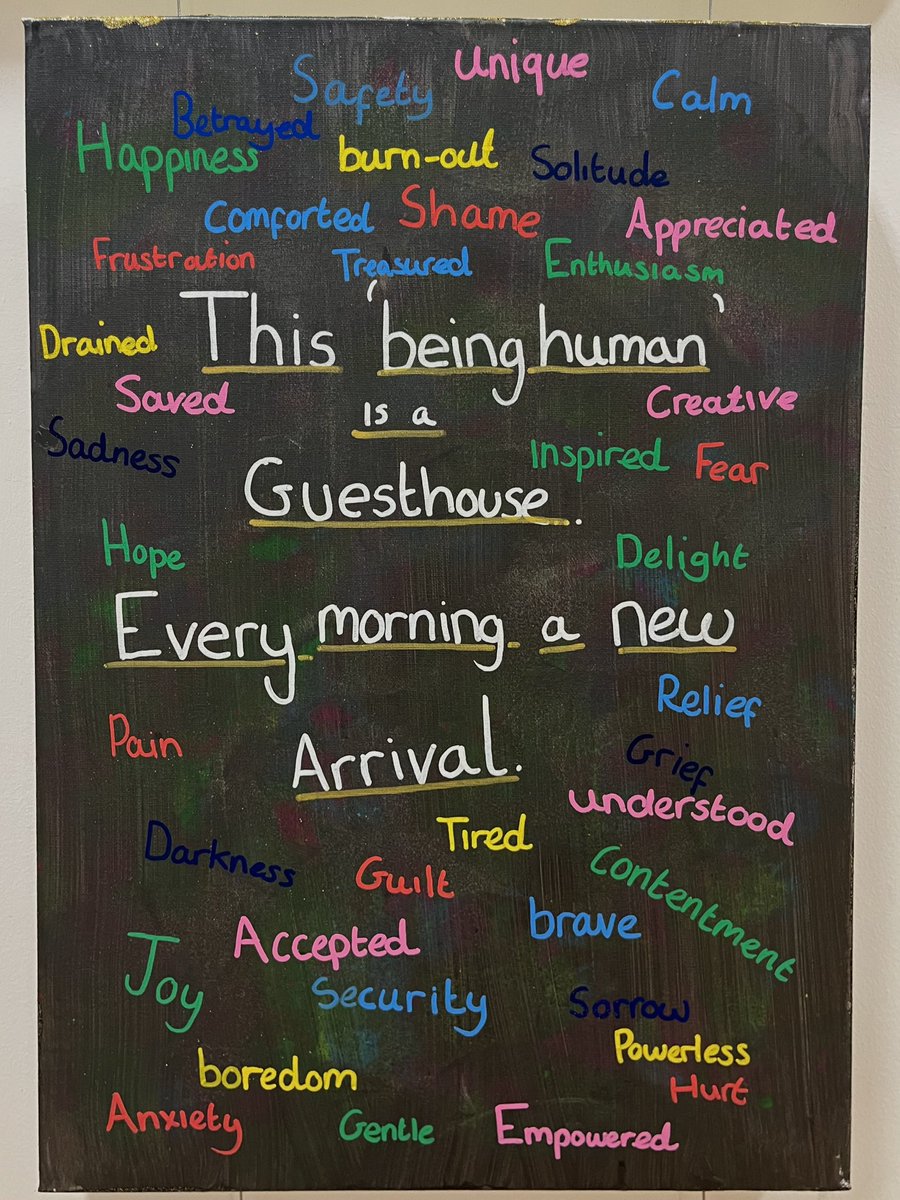 Unique
Safety
Calm
Betrayed
Happiness
burn-out
Solitude
Comforted
Shame
Appreciated
Frustration
Treasured
Enthusiasm
This 'being human'
Drained
Saved
is a
Creative
Sadness
Inspired
Fear
Guesthouse.
Hope
Delight
Every morning a new
Relief
Pain
Arrival.
Grief
understood
Tired
Darkness
Guilt
Contentment
brave
Accepted
Joy
Security
Sorrow
Powerless
boredom
Hurt
Anxiety
Gentle
Empowered